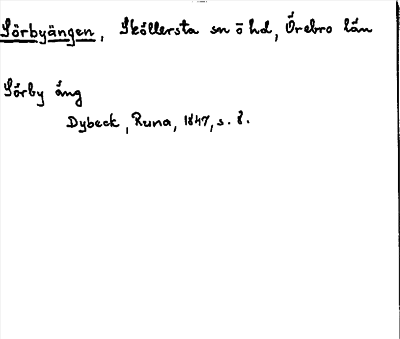 Sörbyängen, Sköllersta sn ö hd, Örebro län
Sörby äng
Dybeck, Runa, 1847, s. 8.